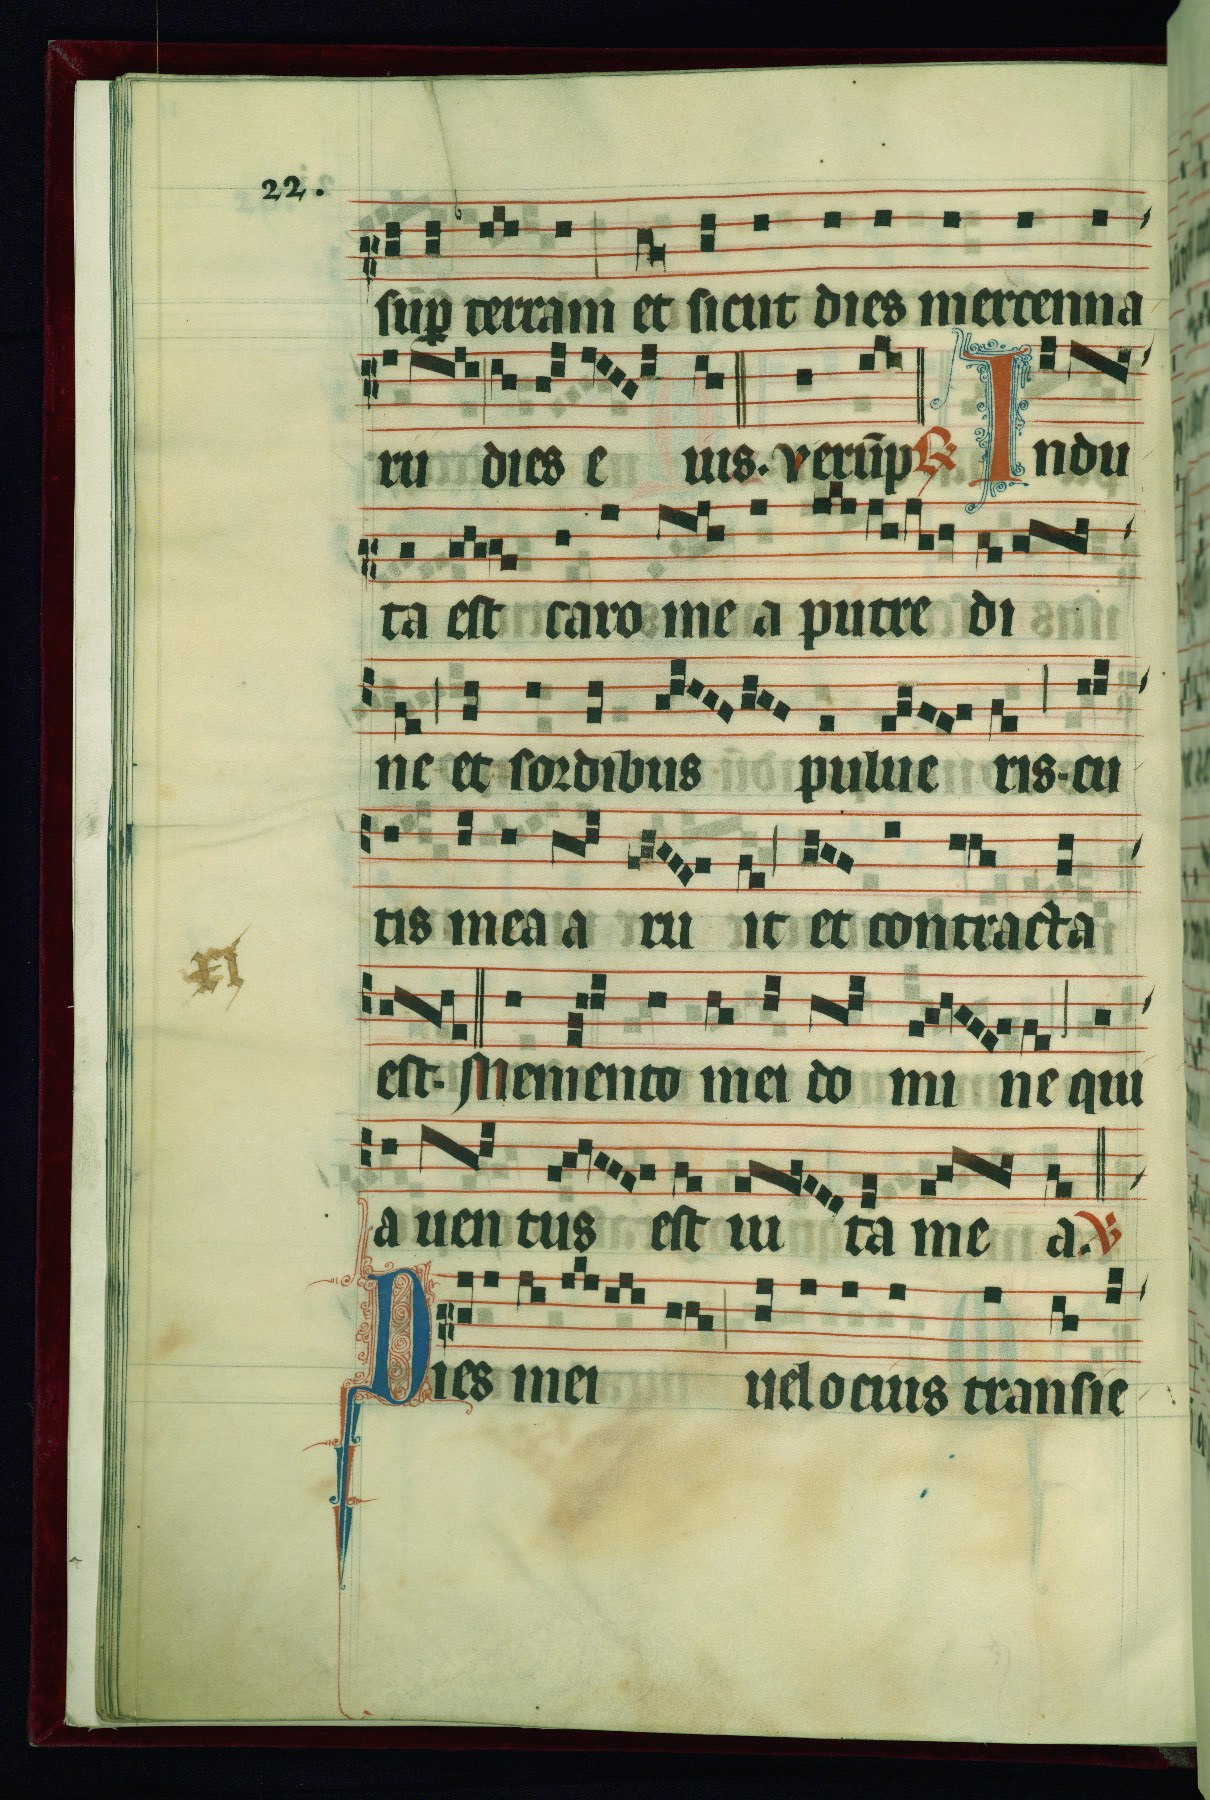 22.
sup terram et sicut dies mercenna
ru dies e ius. verūp ℟ Indu
ta est caro me a putre di
ne et sordibus pulue ris. cu
tis mea a ru it et contracta
XI
est. Memento mei do mi ne qui
a uen tus est ui ta me a. ℣
Dies mei uelocius transie